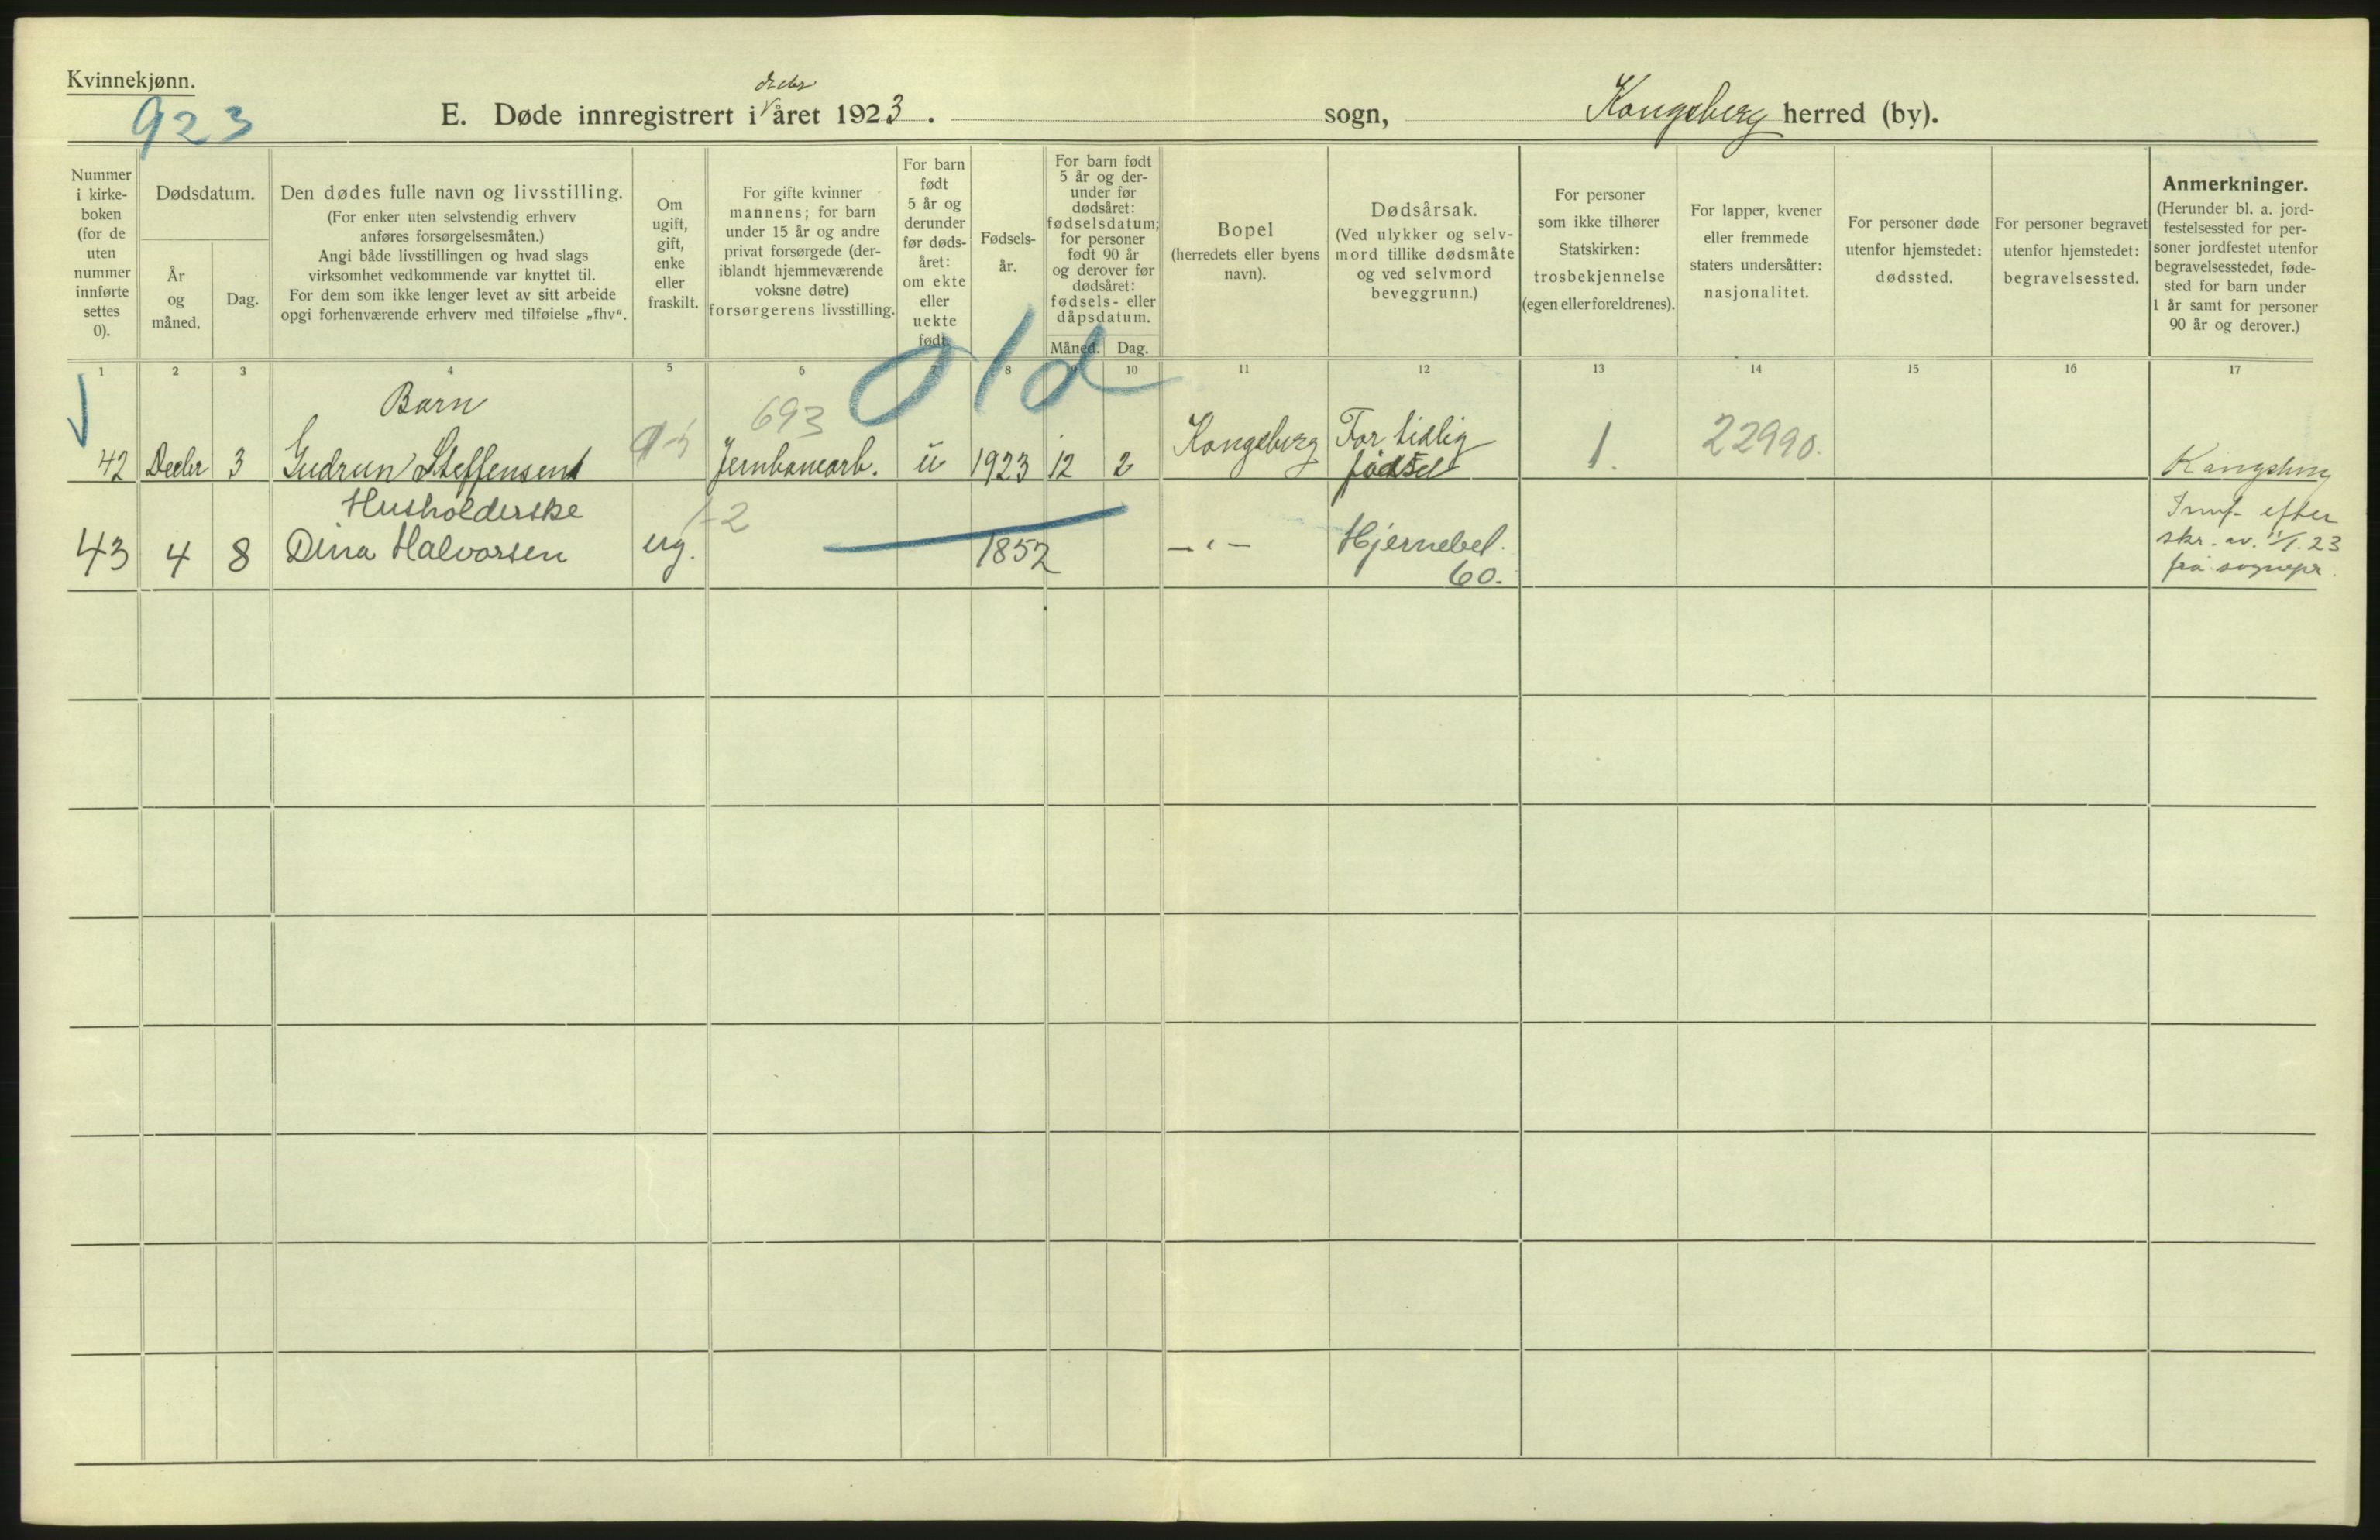 Kvinnekjønn.
923
decbr
E. Døde innregistrert i året 1923. sogn, Kongsberg herred (by).
Nummer
i kirke-
boken
(for de
uten
nummer
innførte
settes
0).
Dødsdatum.
År
og
måned.
Dag.
Den dødes fulle navn og livsstilling.
(For enker uten selvstendig erhverv
anføres forsørgelsesmåten.)
Angi både livsstillingen og hvad slags
virksomhet vedkommende var knyttet til.
For dem som ikke lenger levet av sitt arbeide
opgi forhenværende erhverv med tilføielse „fhv“.
Om
ugift,
gift,
enke
eller
fraskilt.
For gifte kvinner
mannens; for barn
under 15 år og andre
privat forsørgede (der-
iblandt hjemmeværende
voksne døtre)
forsørgerens livsstilling.
For barn
født
5 år og
derunder
før døds-
året:
om ekte
eller
uekte
født.
Fødsels-
år.
For barn født
5 år og der-
under før
dødsåret:
fødselsdatum;
for personer
født 90 år
og derover før
dødsåret:
fødsels- eller
dåpsdatum.
Måned.
Dag.
Bopel
(herredets eller byens
navn).
Dødsårsak.
(Ved ulykker og selv-
mord tillike dødsmåte
og ved selvmord
beveggrunn.)
For personer
som ikke tilhører
Statskirken:
trosbekjennelse
(egen eller foreldrenes).
For lapper, kvener
eller fremmede
staters undersåtter:
nasjonalitet.
For personer døde
utenfor hjemstedet:
dødssted.
For personer begravet
utenfor hjemstedet:
begravelsessted.
Anmerkninger.
(Herunder bl. a. jord-
festelsessted for per-
soner jordfestet utenfor
begravelsesstedet, føde-
sted for barn under
1 år samt for personer
90 år og derover.)
1 2 3 4 5 6 7 8 9 10 11 12 13 14 15 16 17
old
Barn
693
42 Decbr 3 Gudrun Steffensen Jernbanearb. u 1923 12 2 Kongsberg For tidlig
fødsel
1. 22990. Kongsberg
Husholderske
1-2
43 4 8 Dina Halvorsen ug. 1852 — " — Hjernebel.
60.
Innf. efter
skr. av. 1/1. 23
fra sognepr.